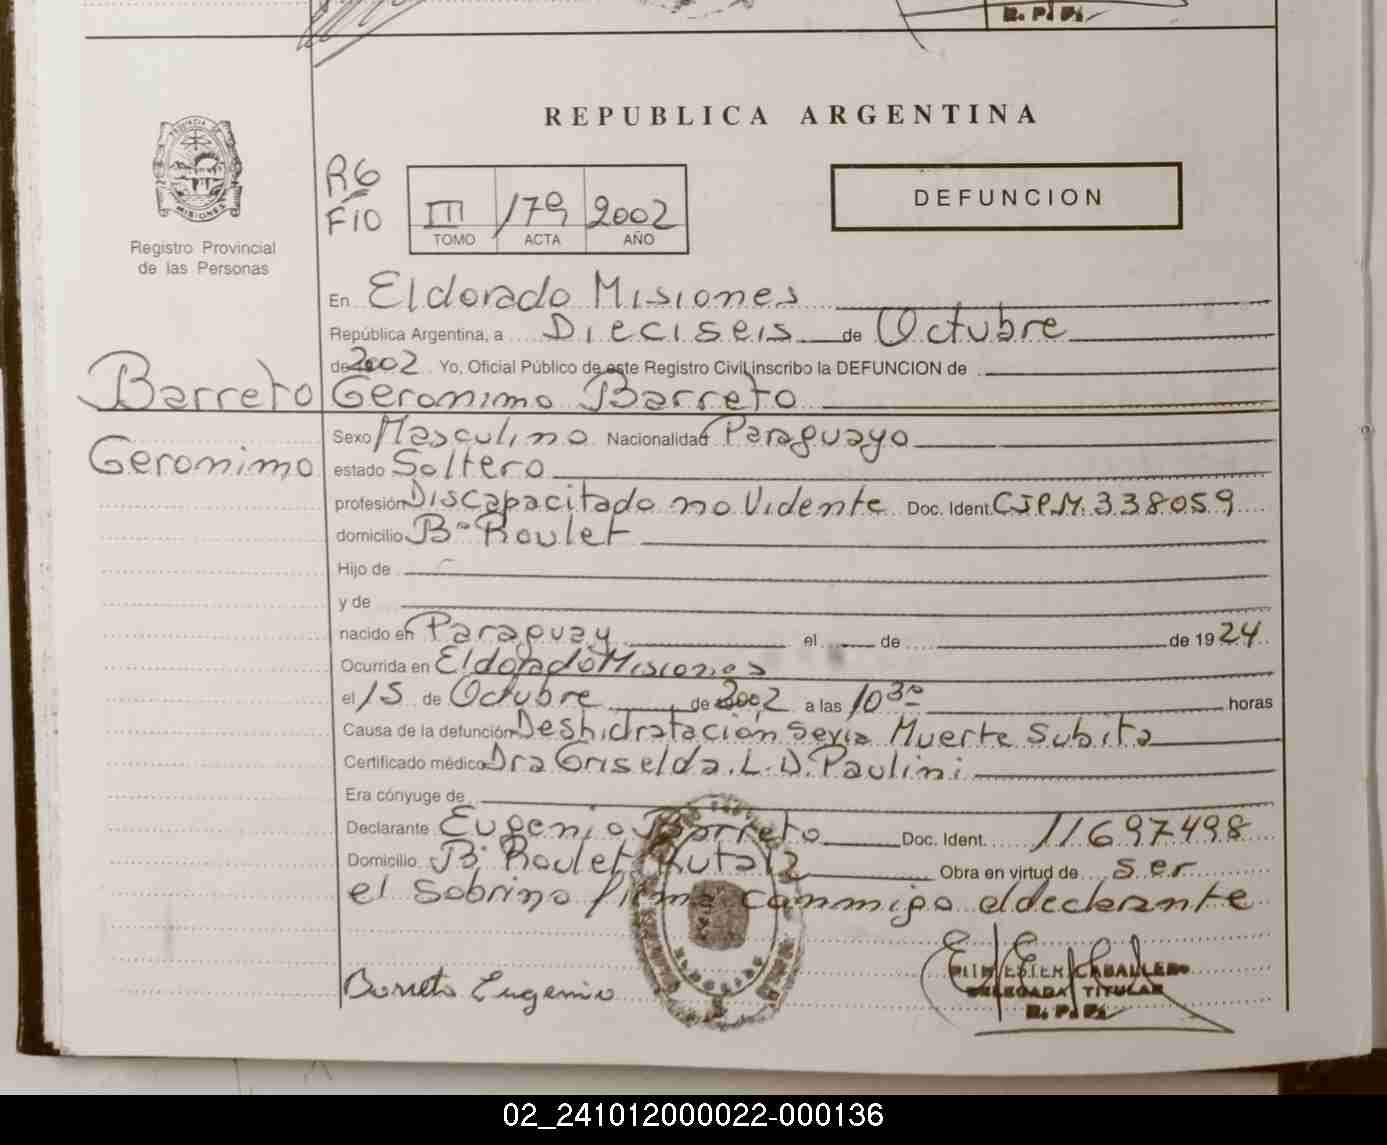 R. P. P.
REPUBLICA ARGENTINA
PROVINCIA DE
MISIONES
Registro Provincial
de las Personas
R6
F10
III 179 2002
TOMO ACTA AÑO
DEFUNCION
En Eldorado Misiones
República Argentina, a Dieciseis de Octubre
de 2002 Yo, Oficial Público de este Registro Civil inscribo la DEFUNCION de
Barreto Geronimo Barreto
Sexo Masculino Nacionalidad Paraguayo
Geronimo
estado Soltero
profesión Discapacitado no Vidente Doc. Ident. CIPM. 338059
domicilio Bº Roulet
Hijo de
y de
nacido en Paraguay el de de 1924
Ocurrida en Eldorado Misiones
el 15 de Octubre de 2002 a las 10 30 horas
Causa de la defunción Deshidratación Sevia Muerte Subita
Certificado médico Dra Griselda. L. D. Paulini
Era cónyuge de
Declarante Eugenio Barreto Doc. Ident. 11697498
Domicilio Bº Roulet Ruta 12 Obra en virtud de ser
el Sobrino firma conmmigo el declarante
Barreto Eugenio
ESTER CABALLERO
DELEGADA TITULAR
R. P. P.
02_241012000022-000136